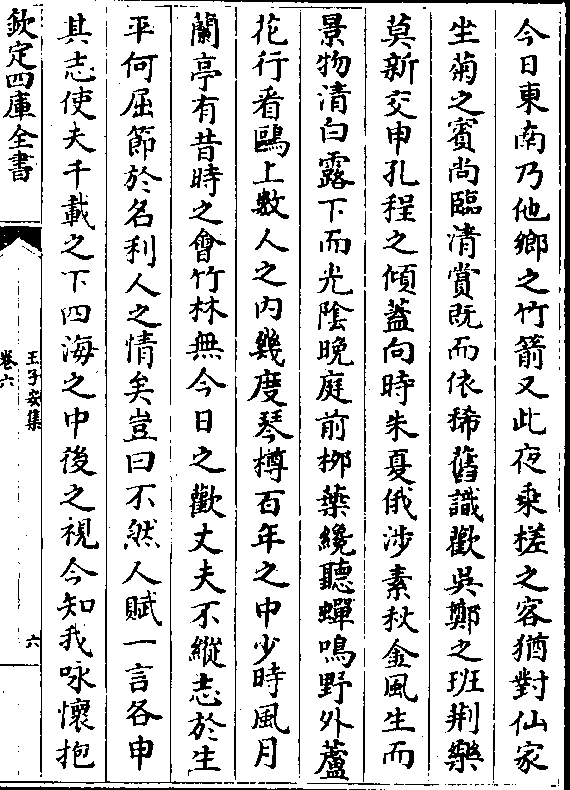 今日東南乃他鄉之竹箭又此夜乘槎之客猶對仙家
坐菊之賓尚臨清賞既而依稀舊識歡吳鄭之班荆樂
莫新交申孔程之傾蓋向時朱夏俄涉素秋金風生而
景物清白露下而光陰晚庭前柳葉纔聽蟬鳴野外蘆
花行看鷗上數人之内幾度琴樽百年之中少時風月
蘭亭有昔時之會竹林無今日之歡丈夫不縱志於生
平何屈節於名利人之情矣豈曰不然人賦一言各申
其志使夫千載之下四海之中後之視今知我咏懷抱
欽定四庫全書
王子安集
卷六
六